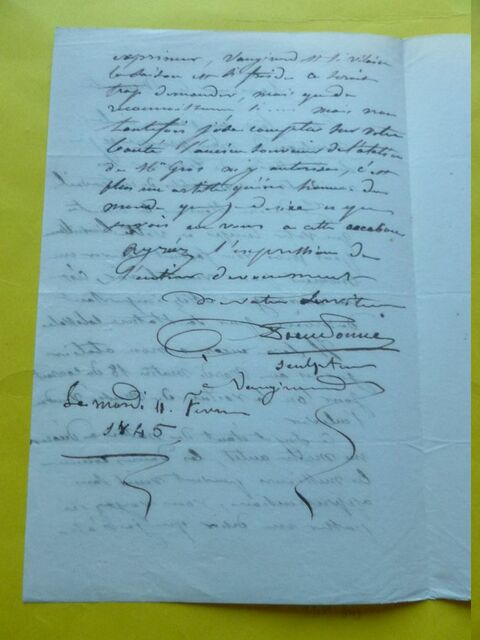 exprimer, Vaugirard est si vilain
la saison est si froide ce serait
trop demander, mais que de
reconnaissance mais non
toutefois j'ose compter sur votre
bonté l'ancien souvenir de l'atelier
de Mr Gros m'y autorise, c'est
plus un artiste qu'un homme du
monde que je desire et que
je vois en vous a cette occasion
Agréez l'expression de
l'entier devouement
De votre Serviteur
Dieudonné
sculpteur
a Vaugirard
Le mardi 11. Fevrier
1845.